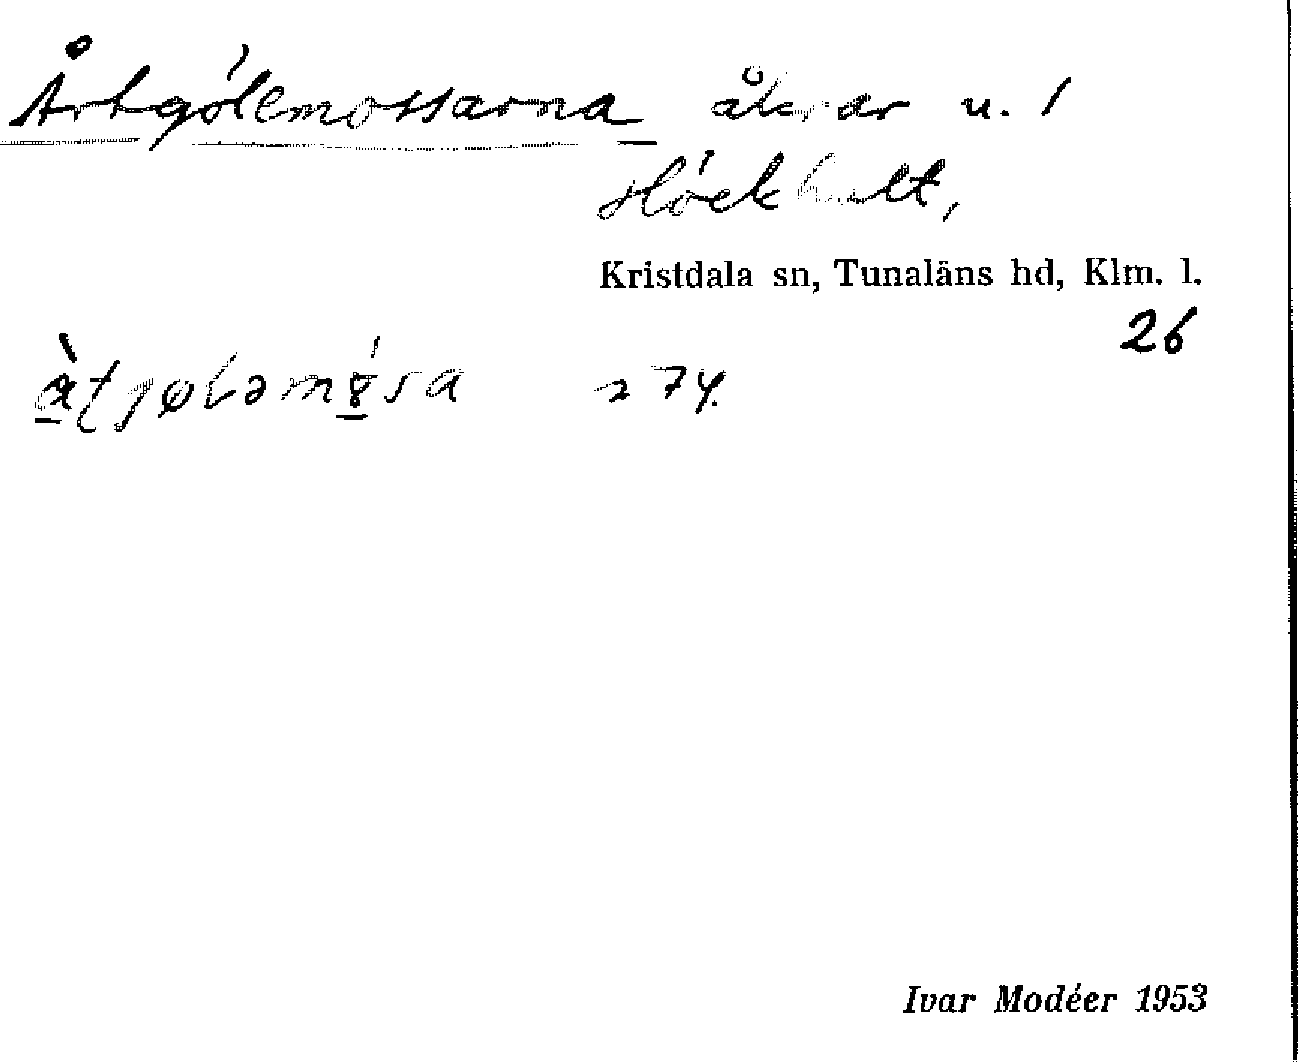 Årtgólemossarna åkrar u. 1
Höckhult,
Kristdala sn, Tunaläns hd, Klm. l.
26
274.
Ivar Modéer 1953